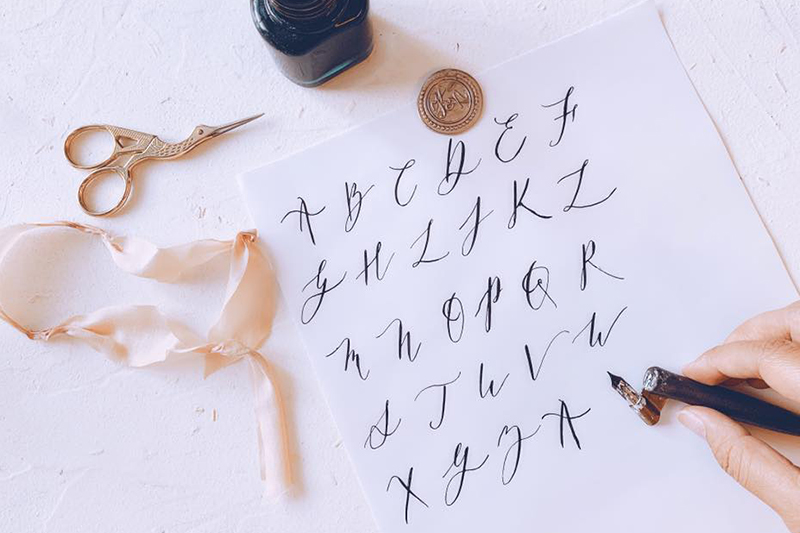 A B C D E F
G H I J K L
M N O P Q R
S T U V W
X Y Z A